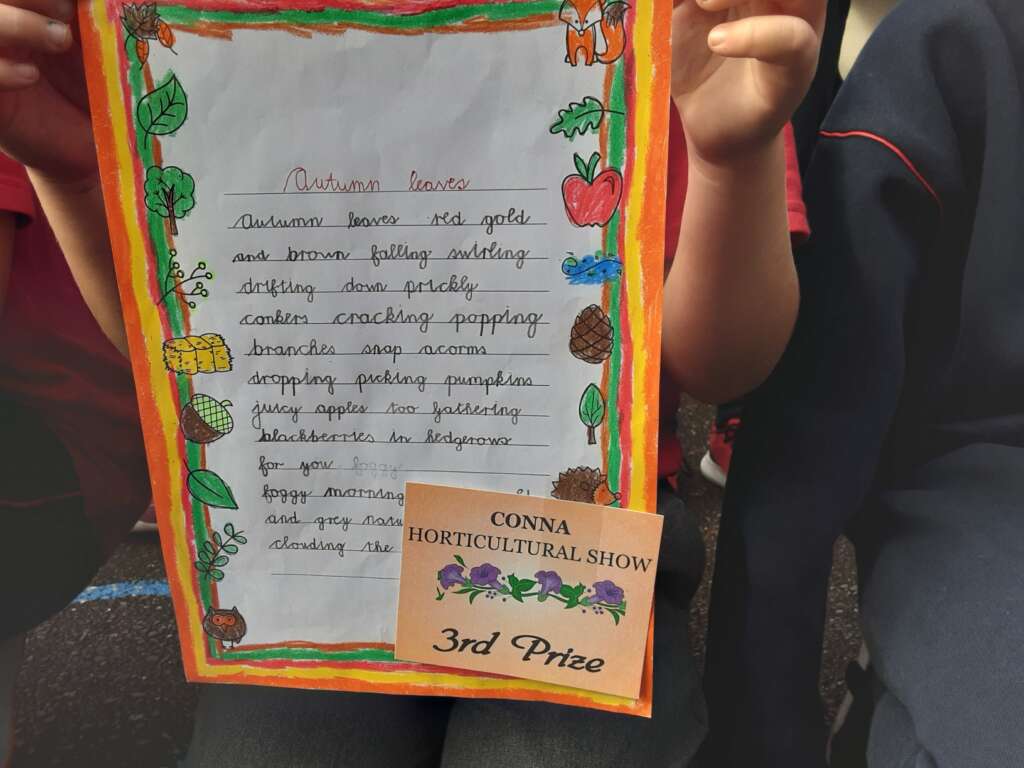 Autumn leaves
Autumn leaves red gold
and brown falling swirling
drifting down prickly
conkers cracking popping
branches snap acorns
dropping picking pumpkins
juicy apples too gathering
blackberries in hedgerows
for you foggy
foggy morning
and grey
clouding the
CONNA
HORTICULTURAL SHOW
3rd Prize